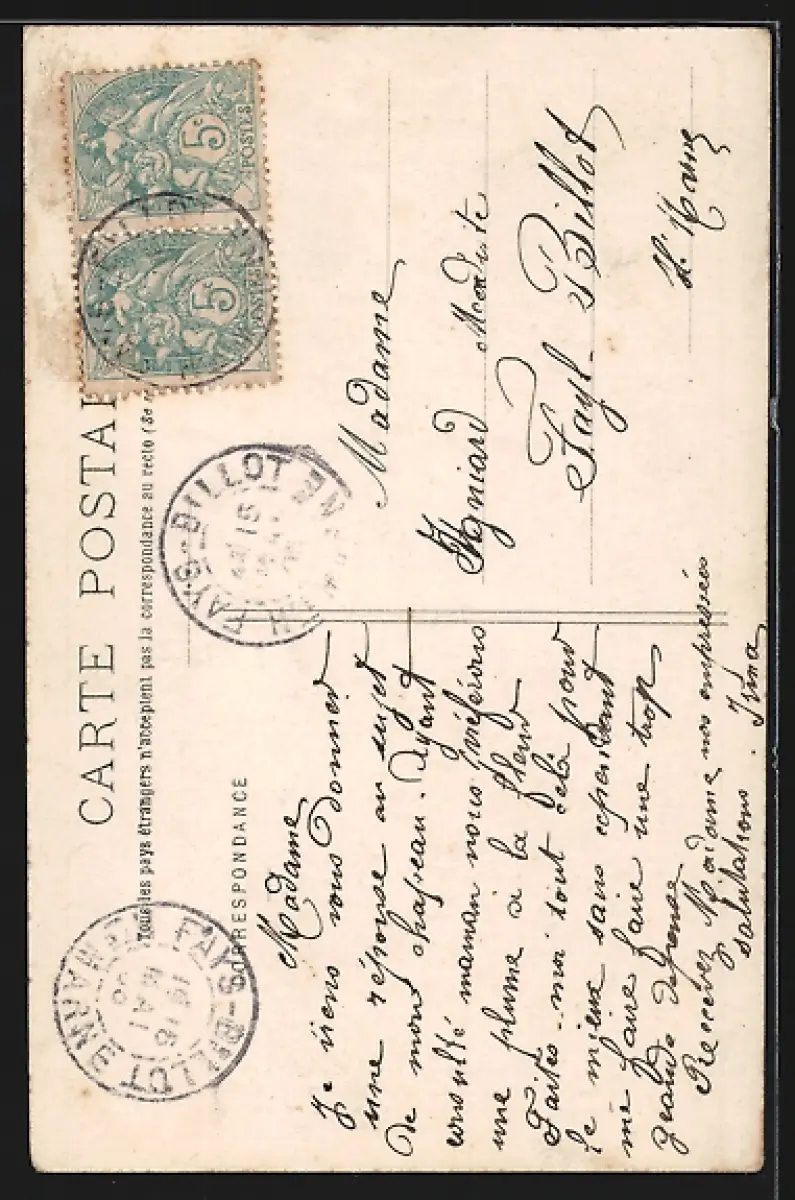 CARTE POSTAL
Tous les pays étrangers n'acceptent pas la correspondance au recto (Se
CORRESPONDANCE
Madame
Je viens vous donner
une réponse au sujet
de mon chapeau. Ayant
consulté maman nous préférons
une plume à la fleur
Faites-moi tout celà pour
le mieux sans cependant
me faire faire une trop
grande dépense
Recevez Madame nos empressées
salutations. Irma
Madame
Modiste
Fayl-Billot
Hte Marne
5c
POSTES
5c
POSTES
FAYS-BILLOT
15
FAYS-BILLOT
Hte MARNE
16
MAI